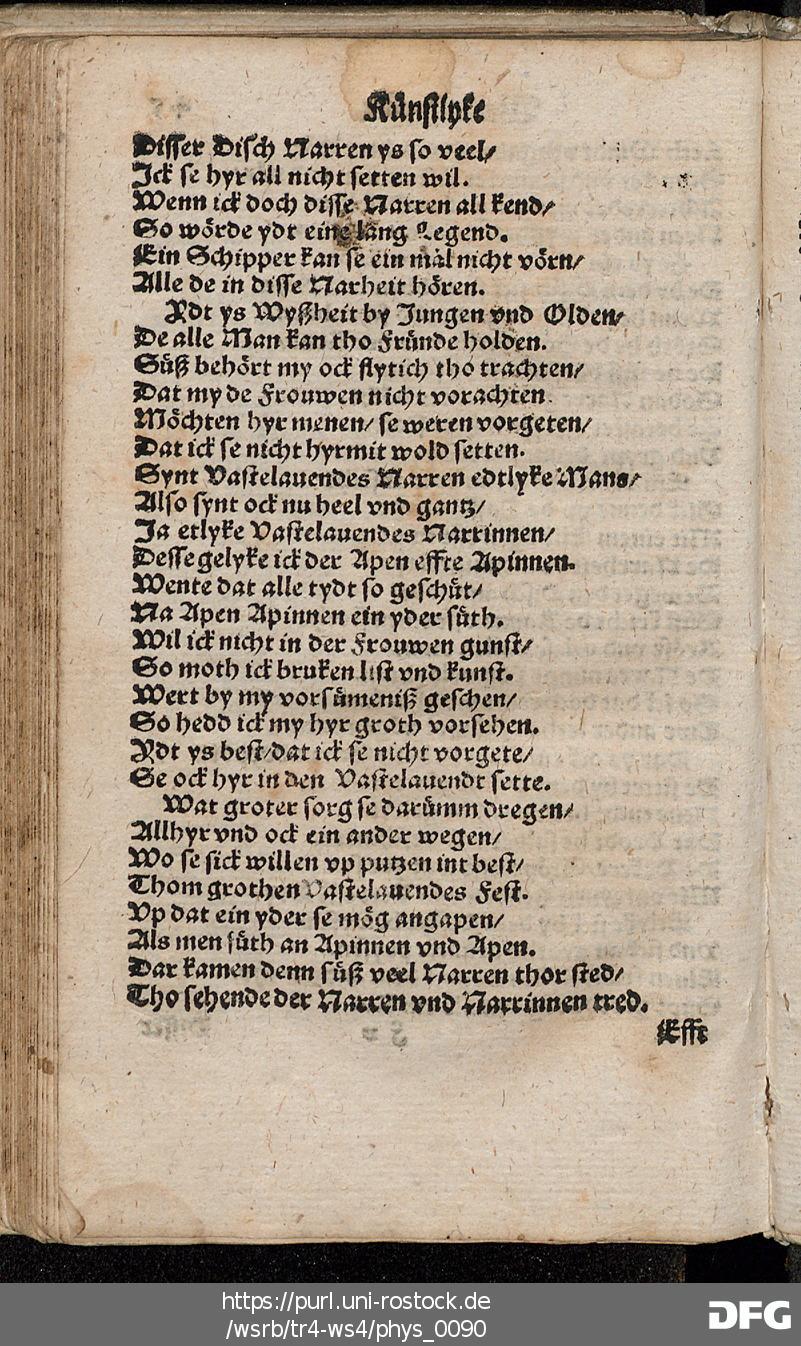 Künstlyke
Disser Disch Narren ys so veel/
Ick se hyr all nicht setten wil.
Wenn ick doch disse Narren all kend/
So wörde ydt eine lang Legend.
Ein Schipper kan se ein mal nicht vörn/
Alle de in disse Narheit hören.
Ydt ys Wyßheit by Jungen vnd Olden/
De alle Man kan tho Fründe holden.
Süß behört my ock flytich tho trachten/
Dat my de Frouwen nicht vorachten.
Möchten hyr menen/ se weren vorgeten/
Dat ick se nicht hyrmit wold setten.
Synt Vastelauendes Narren edtlyke Mans/
Also synt ock nu heel vnd gantz/
Ja etlyke Vastelauendes Narrinnen/
Desse gelyke ick der Apen effte Apinnen.
Wente dat alle tydt so geschüt/
Na Apen Apinnen ein yder süth.
Wil ick nicht in der Frouwen gunst/
So moth ick bruken list vnd kunst.
Wert by my vorsümeniß geschen/
So hedd ick my hyr groth vorsehen.
Ydt ys best/dat ick se nicht vorgete/
Se ock hyr in den Vastelauendt sette.
Wat groter sorg se darümm dregen/
Allhyr vnd ock ein ander wegen/
Wo se sick willen vp putzen int best/
Thom grothen Vastelauendes Fest.
Vp dat ein yder se mög angapen/
Als men süth an Apinnen vnd Apen.
Dar kamen denn süß veel Narren thor sted/
Tho sehende der Narren vnd Narrinnen tred.
Efft
https://purl.uni-rostock.de
/wsrb/tr4-ws4/phys_0090
DFG